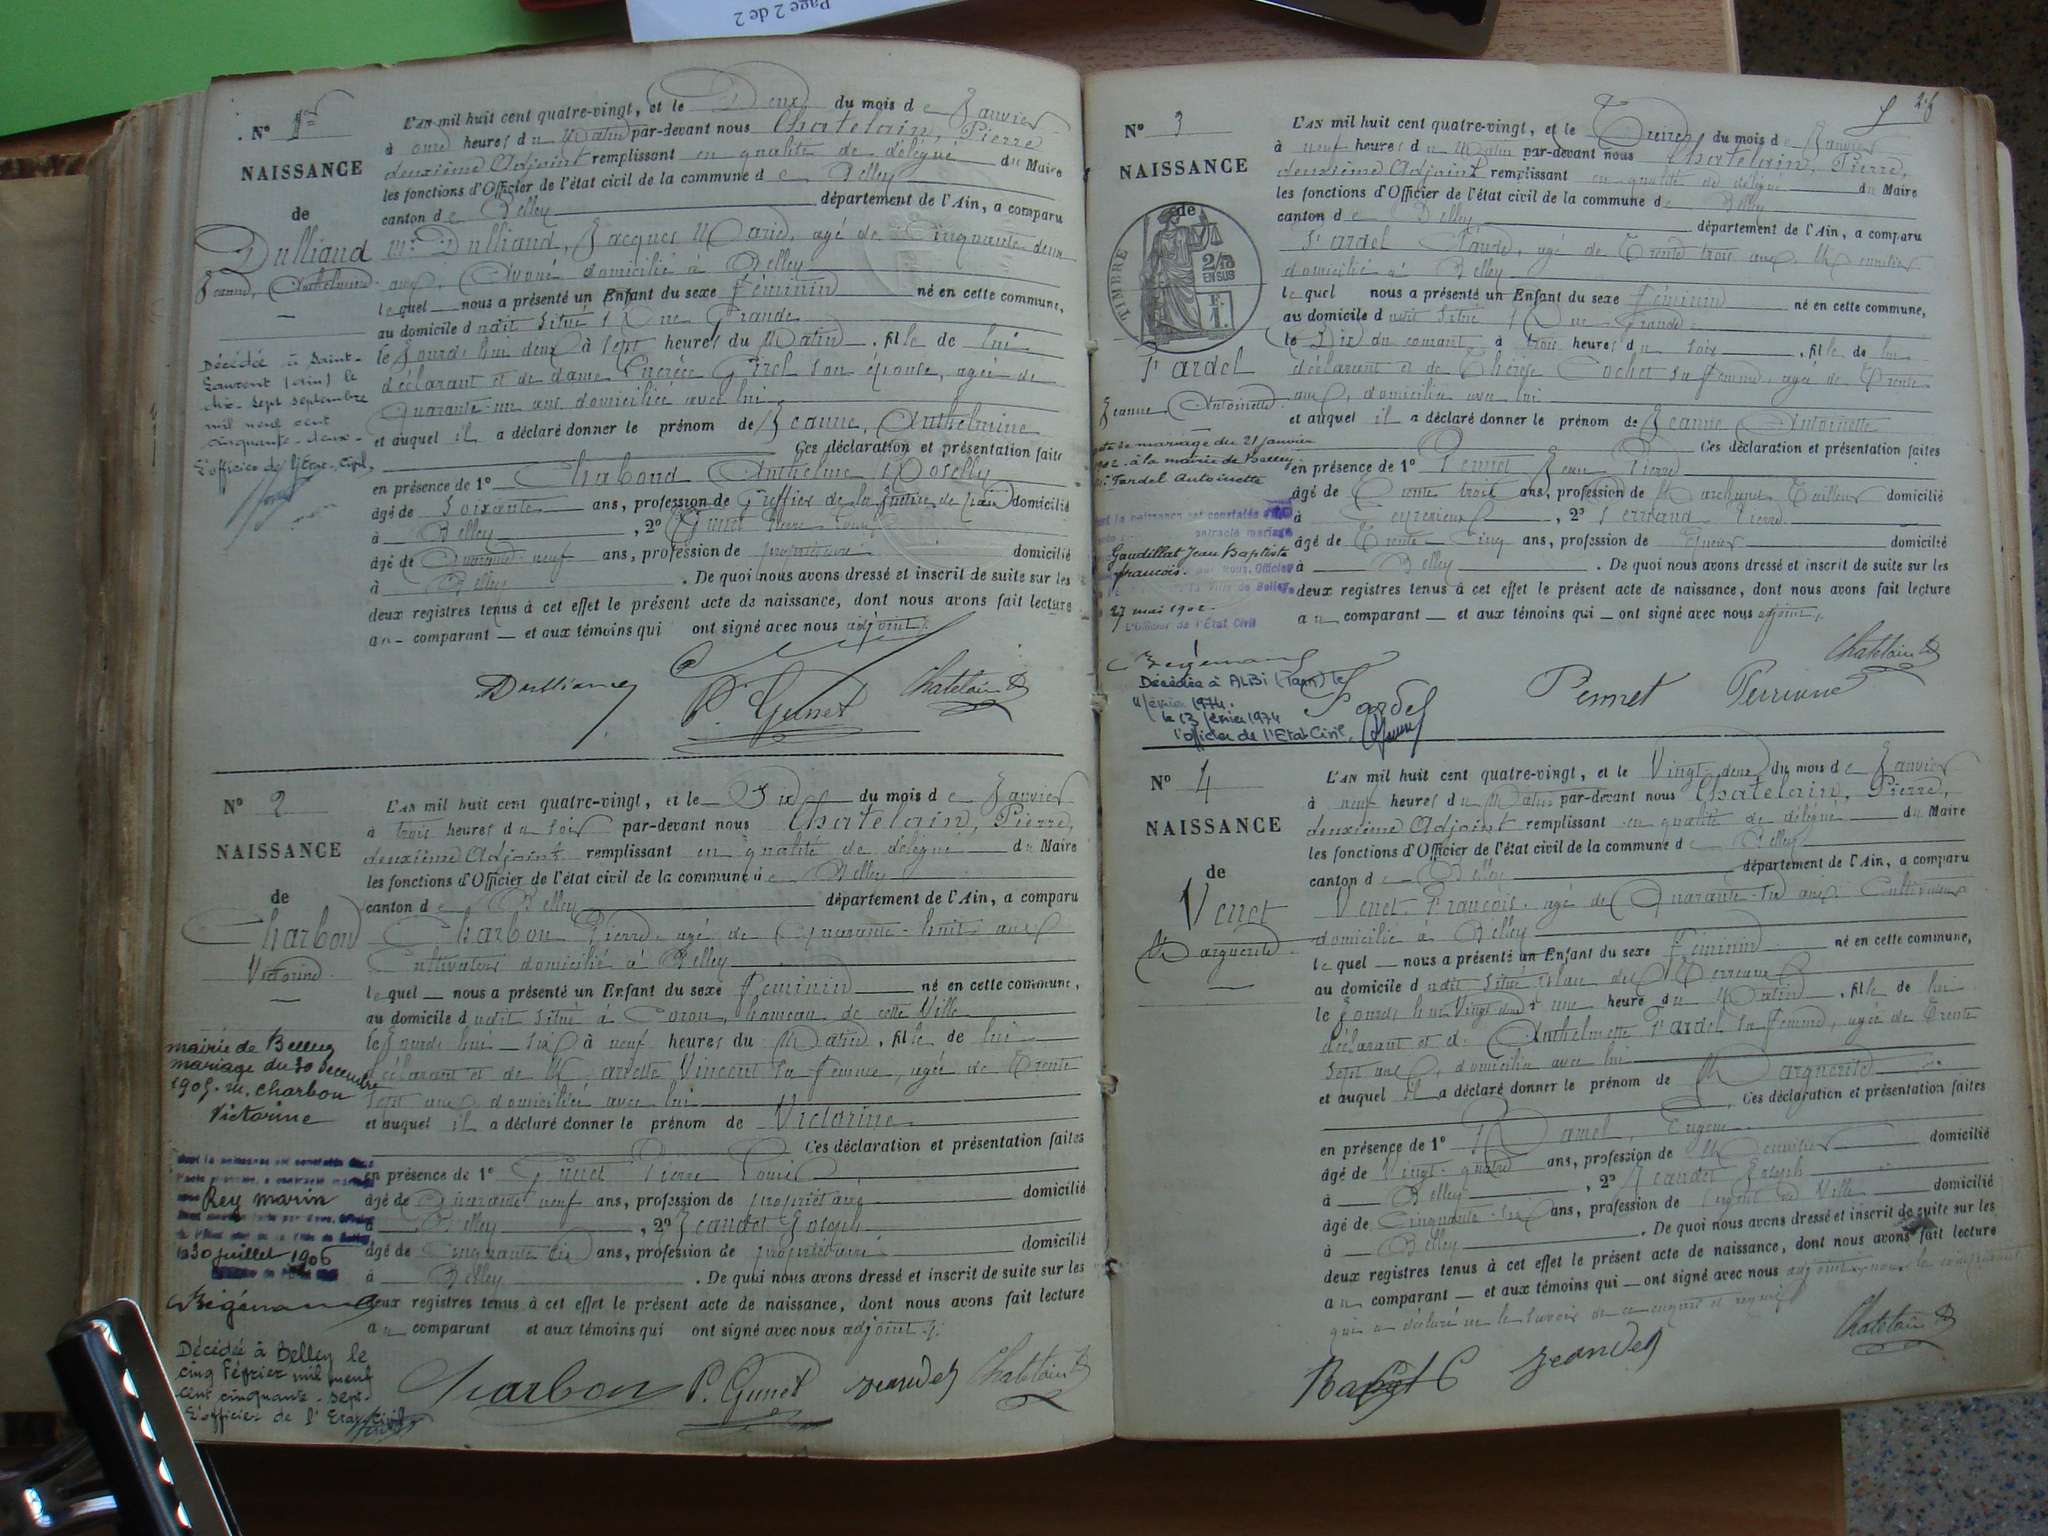 Page 2 de 2
N° 1er
NAISSANCE
de
Dulliand
Jeanne, Anthelmine
Décédée à Saint-
Laurent (Ain) le
dix-sept septembre
mil neuf cent
cinquante-deux-
L'officier de l'État-Civil,
L'AN mil huit cent quatre-vingt, et le Deux du mois de Janvier
à onze heures du Matin par-devant nous Chatelain, Pierre
deuxième Adjoint remplissant en qualité de délégué du Maire
les fonctions d'Officier de l'état civil de la commune de Belley
canton de Belley département de l'Ain, a comparu
Mr Dulliand, Jacques Marie, agé de Cinquante deux
ans, Avoué domicilié à Belley
lequel nous a présenté un Enfant du sexe féminin né en cette commune,
au domicile dudit situé Rue Grande
le Jourd'hui deux à sept heures du Matin, fille de lui
déclarant et de dame Girel son épouse, agée de
Quarante-un ans domiciliée avec lui
et auquel il a déclaré donner le prénom de Jeanne, Anthelmine
Ces déclaration et présentation faites
en présence de 1° Chaboud Anthelme
âgé de Soixante ans, profession de Greffier de la Justice de Paix domicilié
à Belley, 2° Gunet Pierre Louis
âgé de Quarante-neuf ans, profession de propriétaire domicilié
à Belley. De quoi nous avons dressé et inscrit de suite sur les
deux registres tenus à cet effet le présent acte de naissance, dont nous avons fait lecture
au comparant et aux témoins qui ont signé avec nous adjoint.
Dulliand P. Gunet Chatelain
N° 2
NAISSANCE
de
Charbon
Victorine
mairie de Belley
mariage du 30 decembre
1905. M. Charbon
Victorine
dont la naissance est constatée
Rey Marin
30 juillet 1906
Bégémann
Décédée à Belley le
cinq Février mil neuf
cent cinquante-sept-
L'officier de l'Etat Civil
L'AN mil huit cent quatre-vingt, et le Six du mois de Janvier
à trois heures du soir par-devant nous Chatelain, Pierre,
deuxième Adjoint remplissant en qualité de délégué du Maire
les fonctions d'Officier de l'état civil de la commune de Belley
canton de Belley département de l'Ain, a comparu
Charbon Pierre, agé de Quarante-huit ans
Cultivateur domicilié à Belley
lequel nous a présenté un Enfant du sexe féminin né en cette commune,
au domicile dudit situé à Coron, hameau de cette Ville
le Jourd'hui six à neuf heures du Matin, fille de lui
déclarant et de Mariette Vincent sa femme, agée de Trente
sept ans domiciliée avec lui
et auquel il a déclaré donner le prénom de Victorine
Ces déclaration et présentation faites
en présence de 1° Gunet Pierre Louis
âgé de Quarante neuf ans, profession de propriétaire domicilié
à Belley, 2° Jeandet Joseph
âgé de Cinquante six ans, profession de propriétaire domicilié
à Belley. De quoi nous avons dressé et inscrit de suite sur les
deux registres tenus à cet effet le présent acte de naissance, dont nous avons fait lecture
au comparant et aux témoins qui ont signé avec nous adjoint.
Charbon P. Gunet Jeandet Chatelain
N° 3
NAISSANCE
de
TIMBRE
2/10
EN SUS
1 F.
Fardel
Jeanne Antoinette
acte de mariage du 21 janvier
1902 à la mairie de Belley
Fardel Antoinette
dont la naissance est constatée
contracté mariage
Gaudillat Jean Baptiste
francois. par Nous, Officier
la Ville de Belley
27 mai 1902.
L'Officier de l'État Civil
Bégémann
Décédée à ALBI (Tarn) le
février 1974.
le 13 février 1974
l'officier de l'Etat Civil
L'AN mil huit cent quatre-vingt, et le Treize du mois de Janvier
à neuf heures du Matin par-devant nous Chatelain, Pierre,
deuxième Adjoint remplissant en qualité de délégué du Maire
les fonctions d'Officier de l'état civil de la commune de Belley
canton de Belley département de l'Ain, a comparu
Fardel Claude, agé de Trente trois ans, Menuisier
domicilié à Belley
lequel nous a présenté un Enfant du sexe féminin né en cette commune,
au domicile dudit situé Rue Grande
le Dix du courant à trois heures du soir, fille de lui
déclarant et de Thérèse Cochet sa femme, agée de Trente
ans, domiciliée avec lui
et auquel il a déclaré donner le prénom de Jeanne Antoinette
Ces déclaration et présentation faites
en présence de 1° Pernet Jean Pierre
âgé de Trente trois ans, profession de Marchand Tailleur domicilié
à Ceyzerieux, 2° Pierre
âgé de Trente Cinq ans, profession de Epicier domicilié
à Belley. De quoi nous avons dressé et inscrit de suite sur les
deux registres tenus à cet effet le présent acte de naissance, dont nous avons fait lecture
au comparant et aux témoins qui ont signé avec nous adjoint.
Chatelain
Fardel Pernet
N° 4
NAISSANCE
de
Venet
Marguerite
L'AN mil huit cent quatre-vingt, et le Vingt deux du mois de Janvier
à neuf heures du Matin par-devant nous Chatelain, Pierre,
deuxième Adjoint remplissant en qualité de délégué du Maire
les fonctions d'Officier de l'état civil de la commune de Belley
canton de Belley département de l'Ain, a comparu
Venet François, agé de Quarante-six ans, Cultivateur
domicilié à Belley
lequel nous a présenté un Enfant du sexe féminin né en cette commune,
au domicile dudit situé place des Terreaux
le Jourd'hui Vingt deux à une heure du Matin, fille de lui
déclarant et de Anthelmette Fardel sa femme, agée de Trente
sept ans, domiciliée avec lui
et auquel il a déclaré donner le prénom de Marguerite
Ces déclaration et présentation faites
en présence de 1° Eugène
âgé de Vingt-quatre ans, profession de Menuisier domicilié
à Belley, 2° Jeandet Joseph
âgé de Cinquante-six ans, profession de Sergent de Ville domicilié
à Belley. De quoi nous avons dressé et inscrit de suite sur les
deux registres tenus à cet effet le présent acte de naissance, dont nous avons fait lecture
au comparant et aux témoins qui ont signé avec nous adjoint, non le comparant
qui a déclaré ne le savoir de ce enquis et requis
Jeandet Chatelain